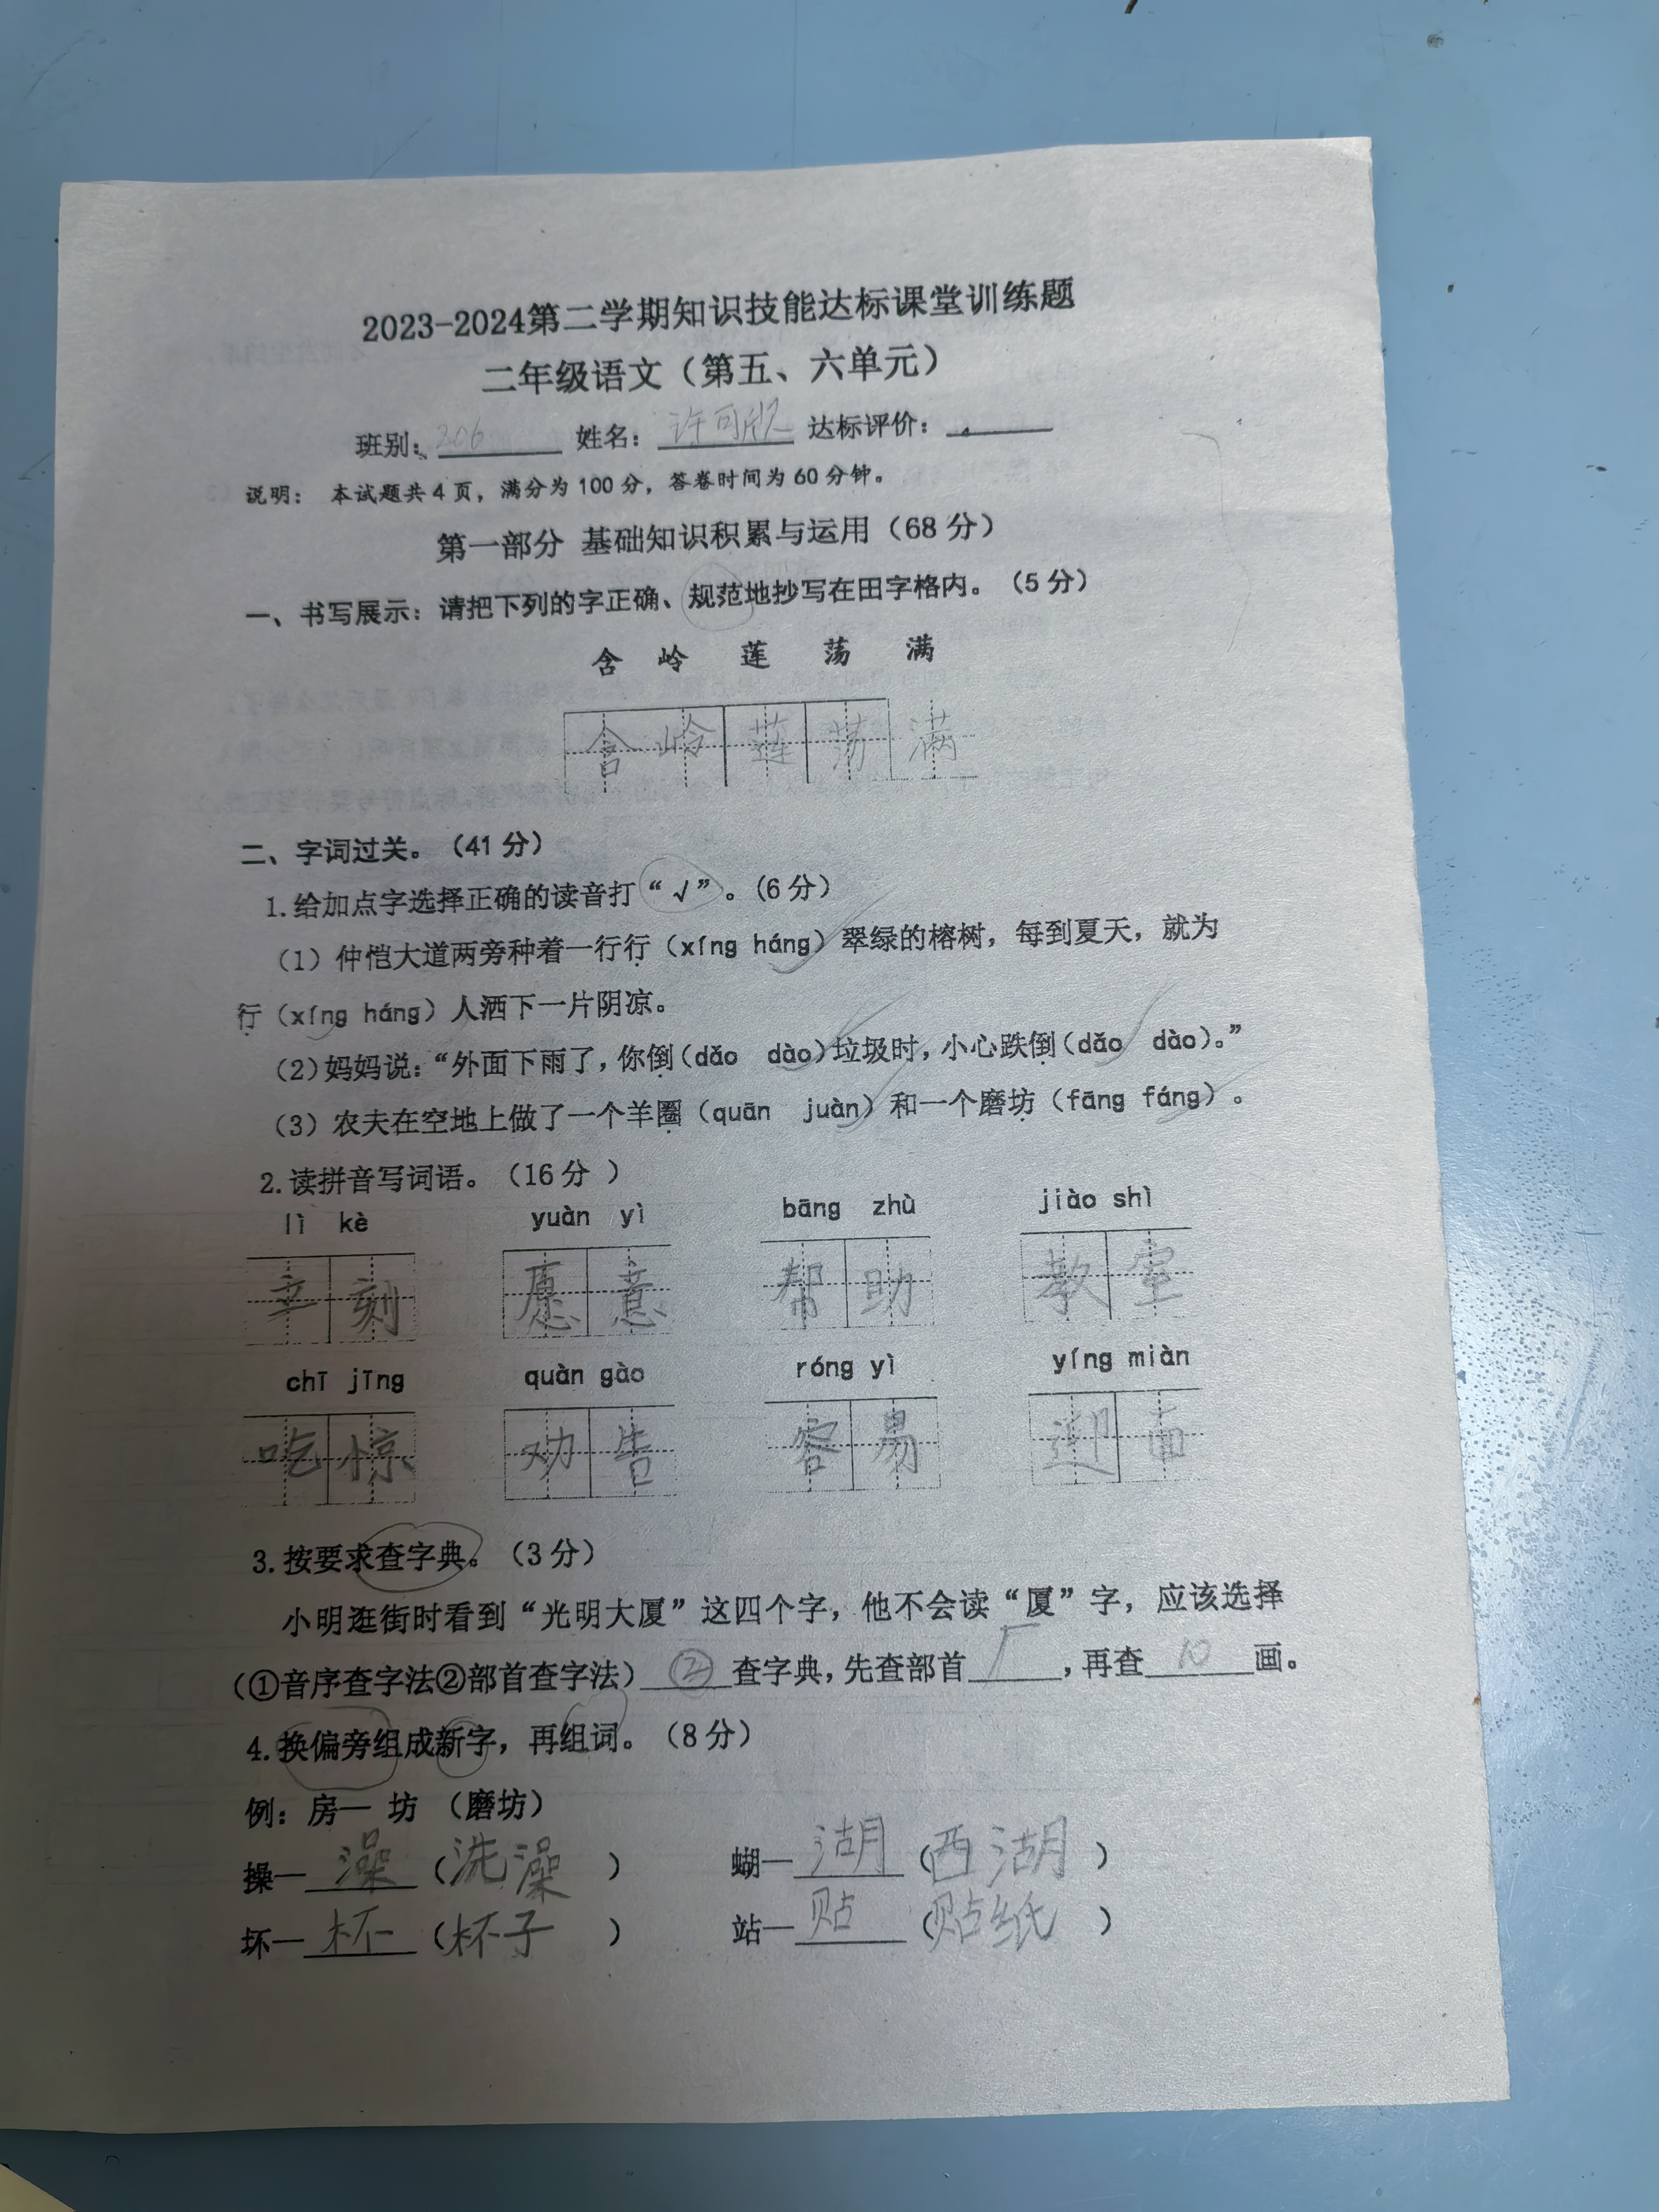 2023-2024第二学期知识技能达标课堂训练题
二年级语文（第五、六单元）
班别：206 姓名：许可欣 达标评价：
说明： 本试题共4页，满分为100分，答卷时间为60分钟。
第一部分 基础知识积累与运用（68分）
一、书写展示：请把下列的字正确、规范地抄写在田字格内。（5分）
含 岭 莲 荡 满
含 岭 莲 荡 满
二、字词过关。（41分）
1.给加点字选择正确的读音打“√”。（6分）
（1）仲恺大道两旁种着一行行（xíng háng）翠绿的榕树，每到夏天，就为
行（xíng háng）人洒下一片阴凉。
（2）妈妈说：“外面下雨了，你倒（dǎo dào）垃圾时，小心跌倒（dǎo dào）。”
（3）农夫在空地上做了一个羊圈（quān juàn）和一个磨坊（fāng fáng）。
2.读拼音写词语。（16分 ）
lì kè yuàn yì bāng zhù jiào shì
刻 愿意 帮助 教室
chī jīng quàn gào róng yì yíng miàn
吃惊 劝告 容易 迎面
3.按要求查字典。（3分）
小明逛街时看到“光明大厦”这四个字，他不会读“厦”字，应该选择
（①音序查字法②部首查字法）②查字典，先查部首厂，再查10画。
4.换偏旁组成新字，再组词。（8分）
例：房— 坊 （磨坊）
操—澡（洗澡） 蝴—湖（西湖）
坏—杯（杯子） 站—贴（贴纸）